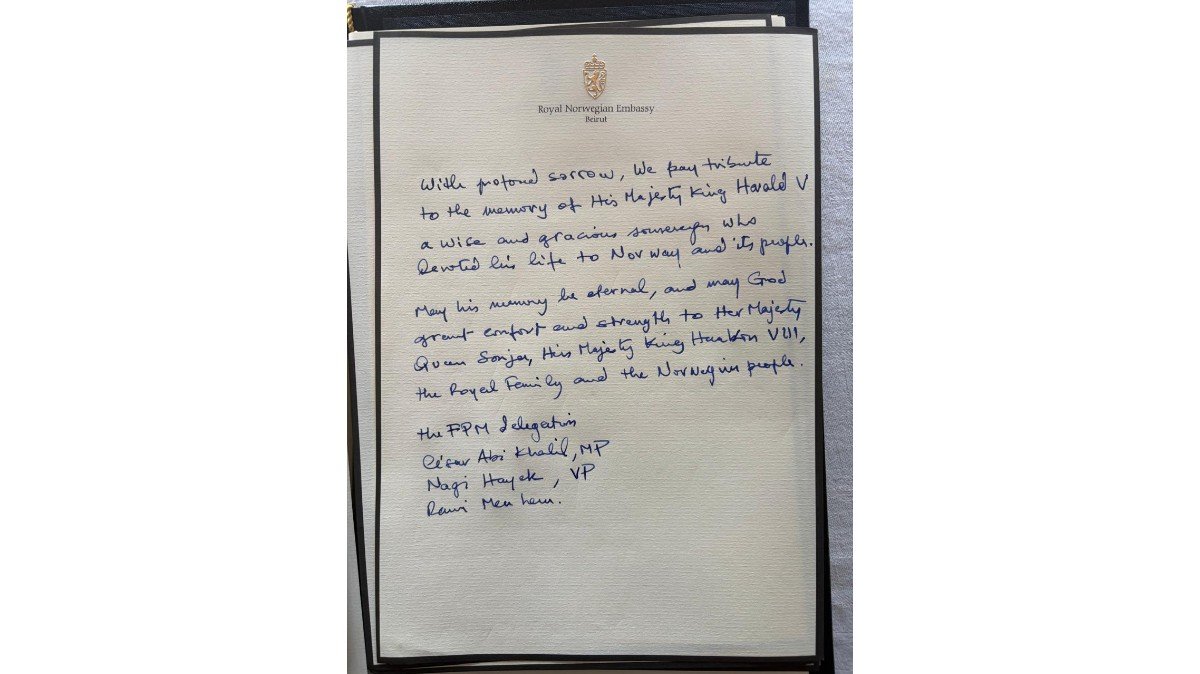 Royal Norwegian Embassy
Beirut
With profond sorrow, We pay tribute
to the memory of His Majesty King Harald V
a wise and gracious sovereign who
devoted his life to Norway and its people.
May his memory be eternal, and may God
grant comfort and strength to Her Majesty
Queen Sonja, His Majesty King Haakon VIII,
the Royal Family and the Norwegian people.
the FPM delegation
César Abi Khalil, MP
Nagi Hayek, VP
Rami Menhem.